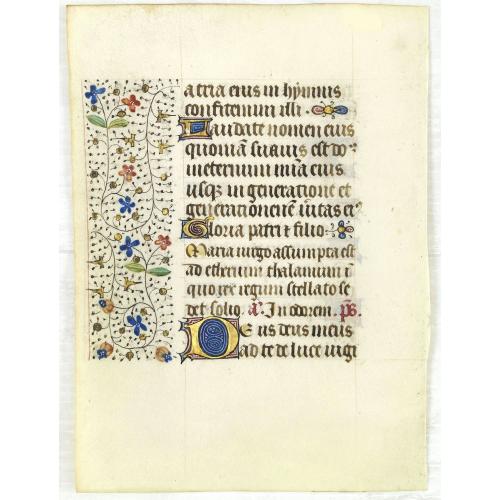 atria eius in hymnis
confitemini illi
Laudate nomen eius
quoniã suauis est do
ineternum mĩa eius
usqz in generatione et
generationẽ ueritas eiꝰ
Gloria patri et filio
Maria uirgo assumpta est
ad ethereum thalamum ĩ
quo rex regum stellato se
det solio. ã. In odorem. ps.
Deus deus meus
ad te de luce uigi